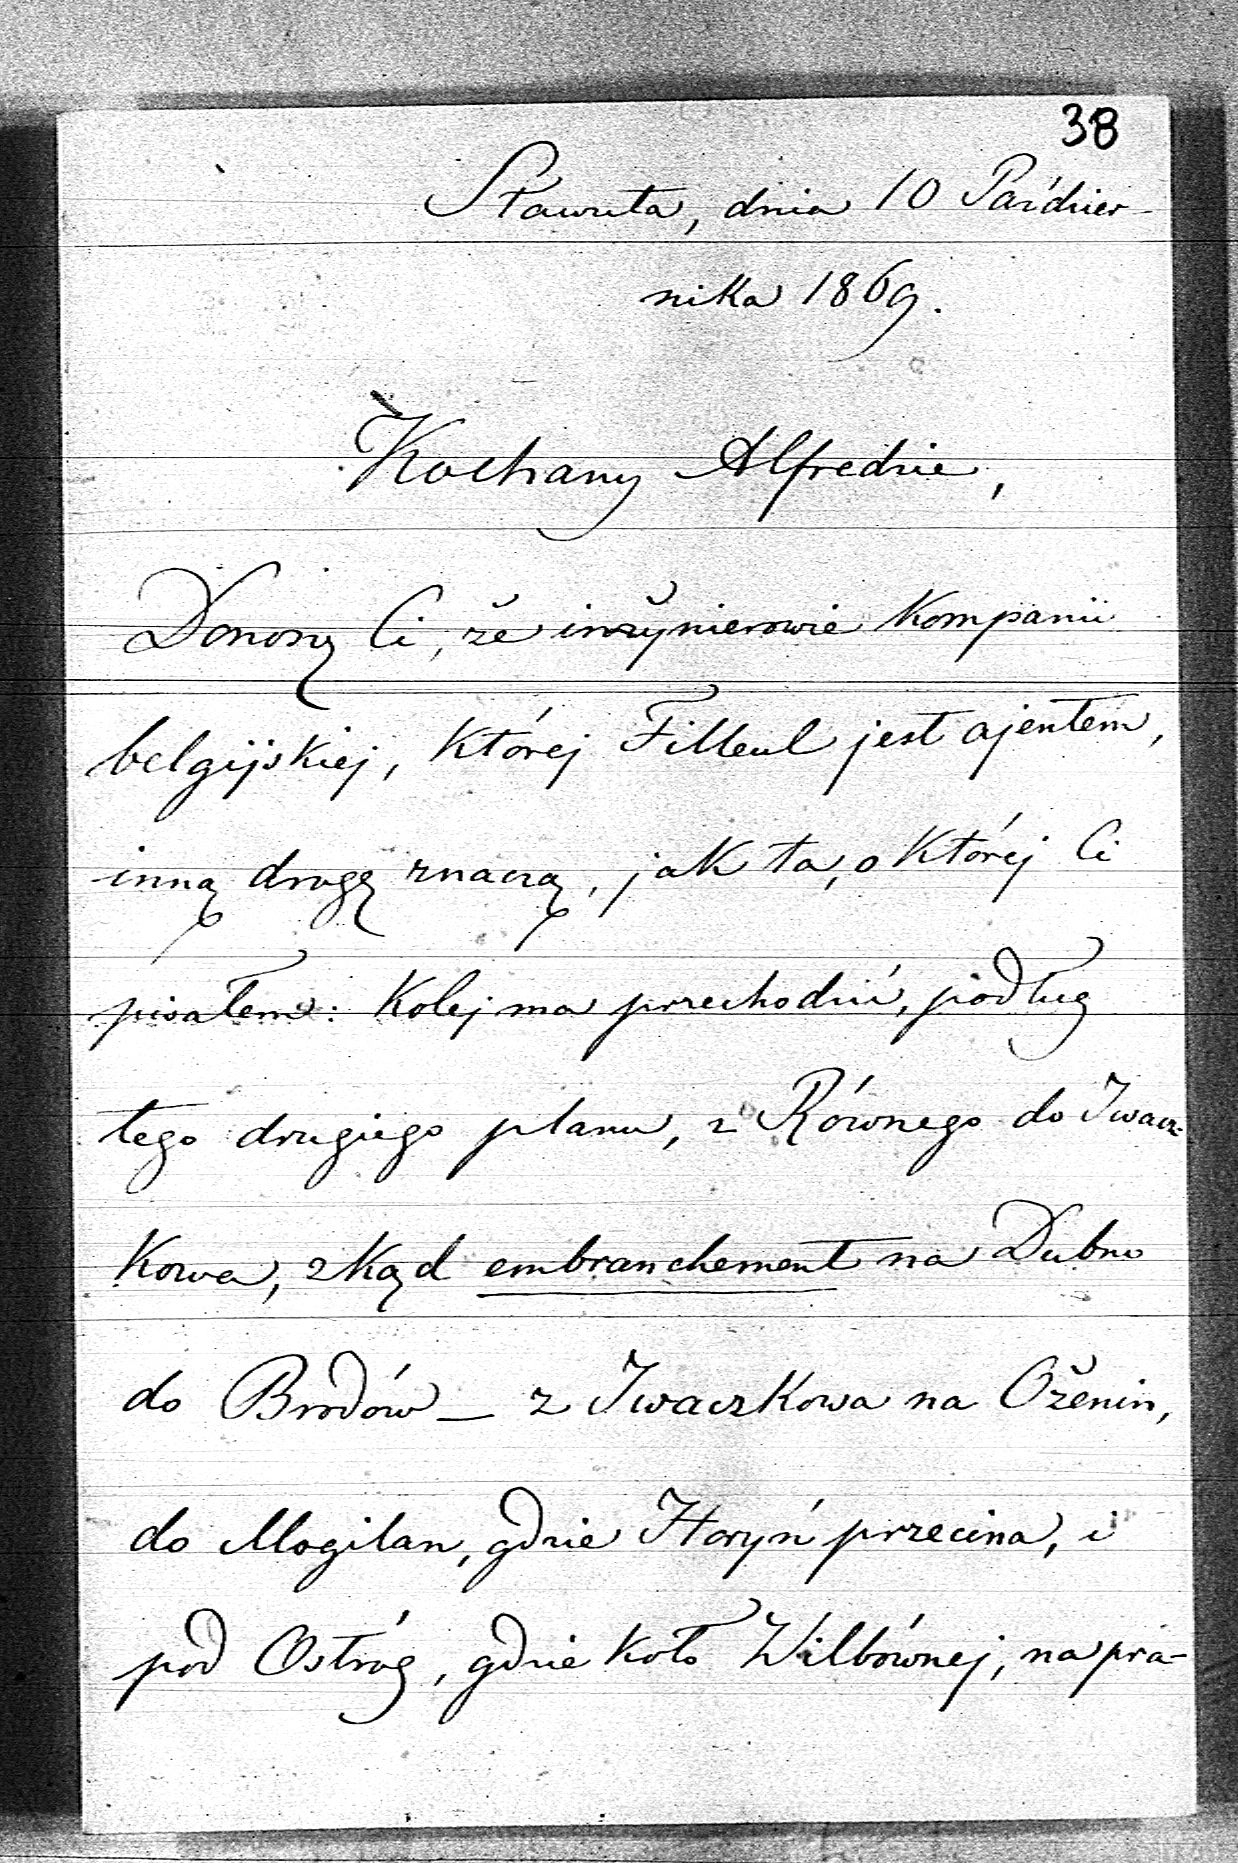 38
Sławuta, dnia 10 Paździer-
nika 1869.
Kochany Alfredzie,
Donoszę Ci, że inżynierowie Kompanii
belgijskiej, której Filleul jest ajentem,
inną drogę znaczą, jak ta, o której Ci
pisałem: Kolej ma przechodzić, podług
tego drugiego planu, z Równego do Iwacz-
kowa, zkąd embranchement na Dubno
do Brodów — z Iwaczkowa na Ożenin,
do Mogilan, gdzie Horyń przecina, i
pod Ostróg, gdzie koło Wilbównej, na pra-